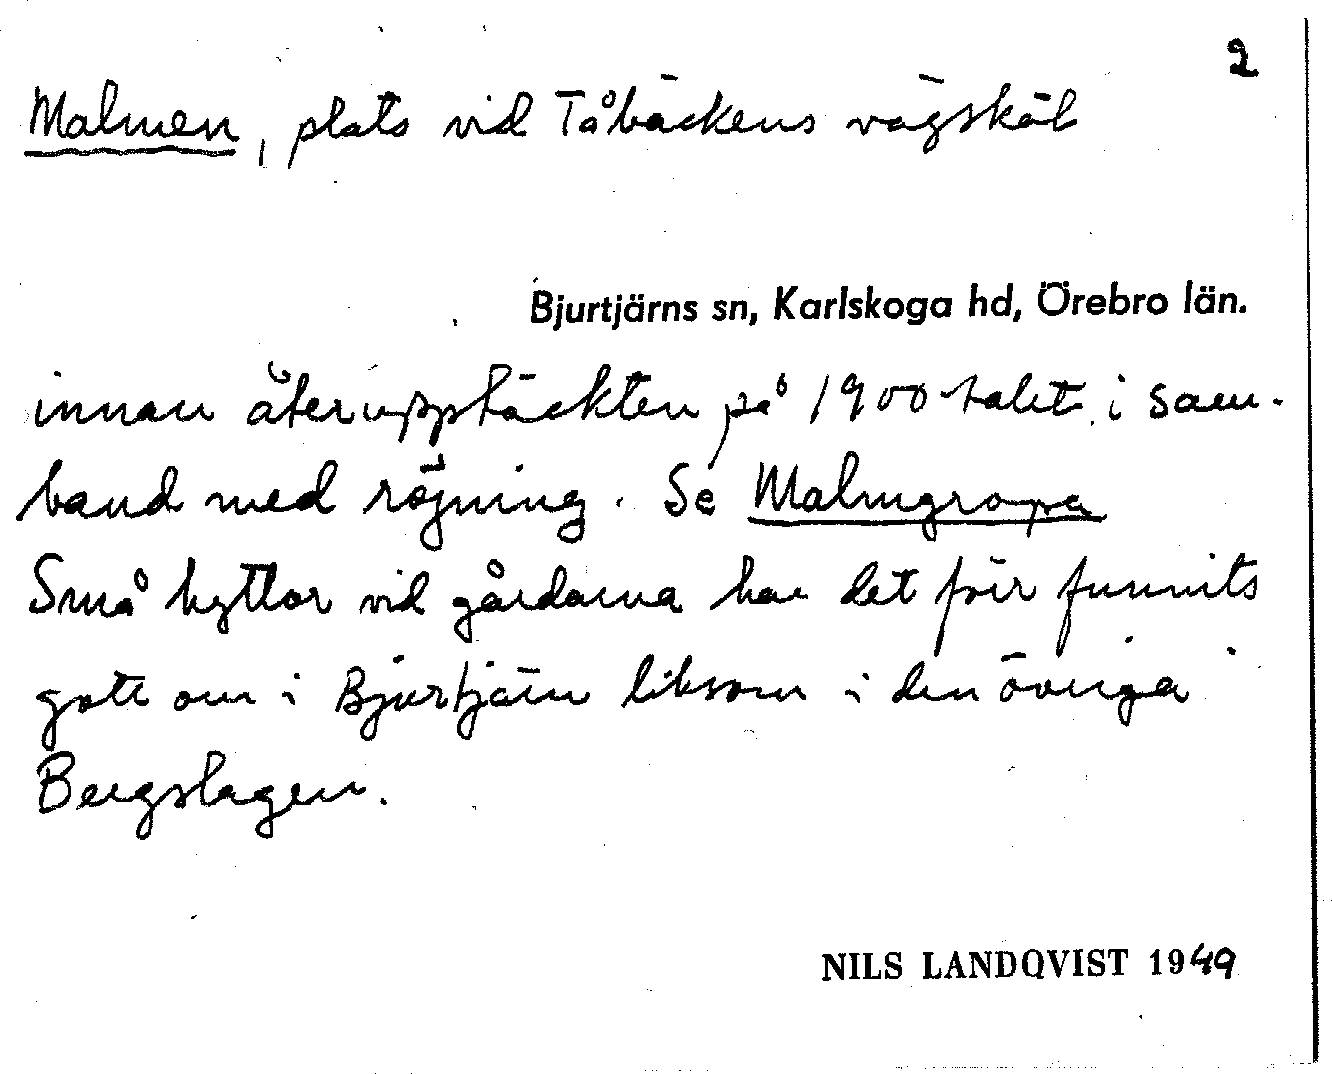 2
Malmen, plats vid Tåbäckens vägskäl
Bjurtjärns sn, Karlskoga hd, Örebro län.
innan återupptäckten på 1900-talet i sam-
band med röjning. Se Malmgropa
Små hyttor vid gårdarna har det förr funnits
gott om i Bjurtjärn liksom i den övriga
Bergslagen.
NILS LANDQVIST 1949